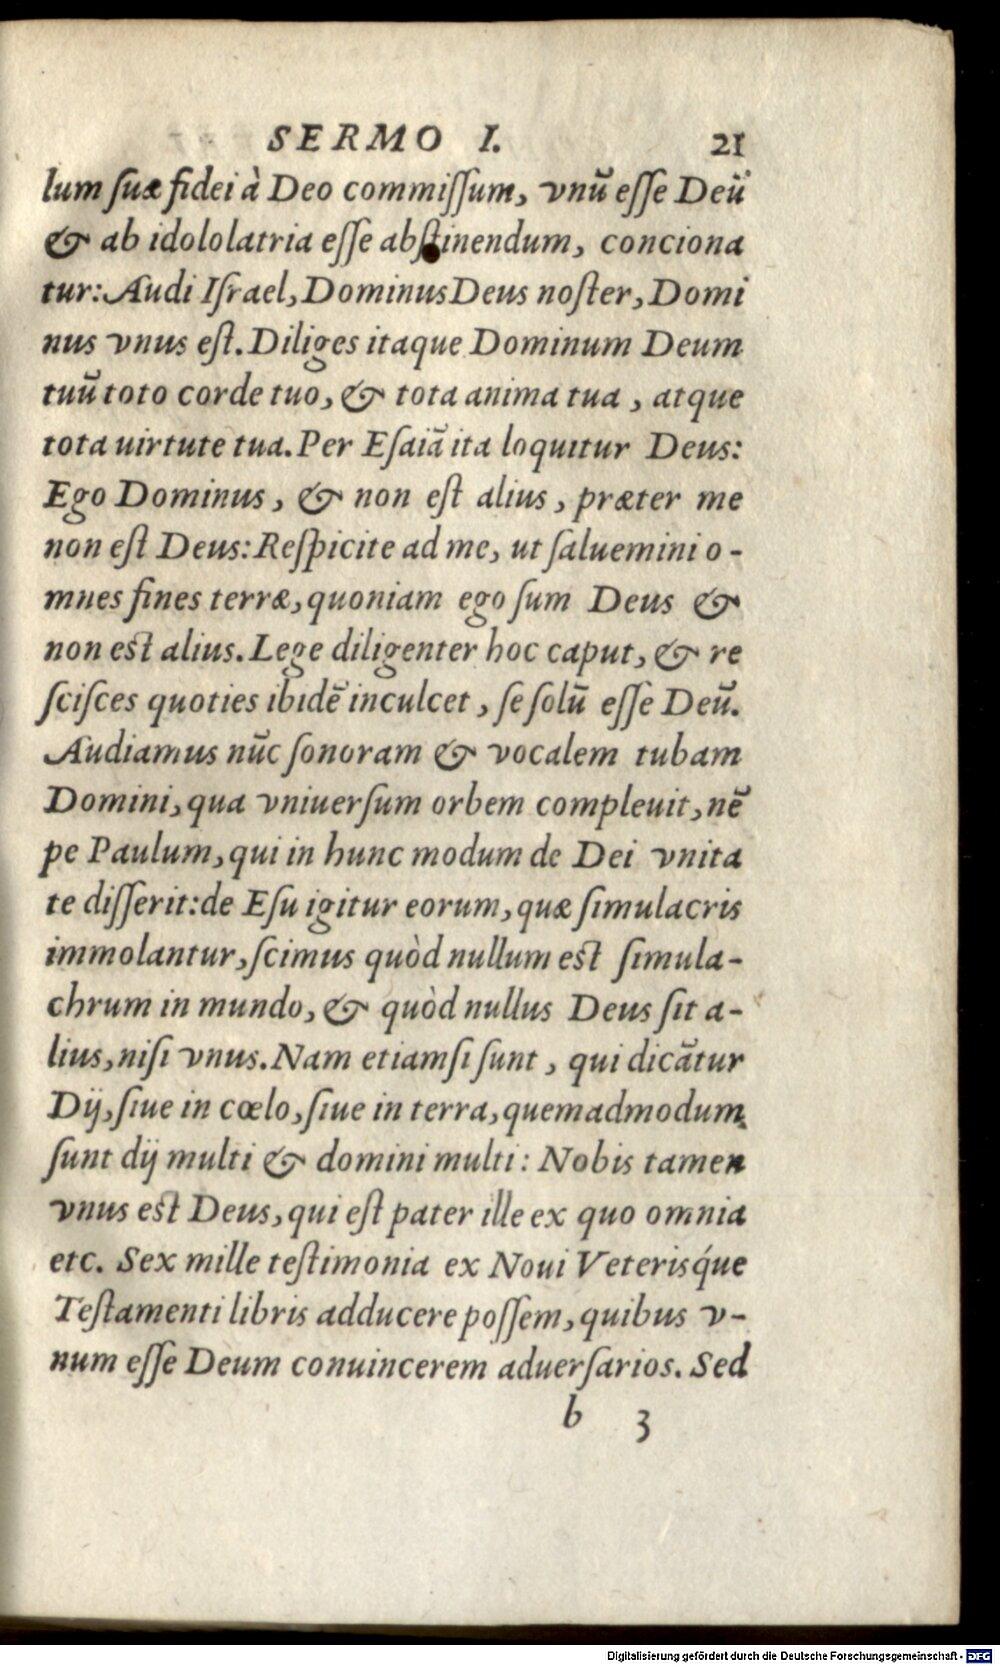 SERMO I. 21
lum suæ fidei à Deo commissum, vnū esse Deū
& ab idololatria esse abstinendum, conciona
tur: Audi Israel, Dominus Deus noster, Domi
nus vnus est. Diliges itaque Dominum Deum
tuū toto corde tuo, & tota anima tua, atque
tota uirtute tua. Per Esaiā ita loquitur Deus:
Ego Dominus, & non est alius, præter me
non est Deus: Respicite ad me, ut saluemini o-
mnes fines terræ, quoniam ego sum Deus &
non est alius. Lege diligenter hoc caput, & re
scisces quoties ibidē inculcet, se solū esse Deū.
Audiamus nūc sonoram & vocalem tubam
Domini, qua vniuersum orbem compleuit, nē
pe Paulum, qui in hunc modum de Dei vnita
te disserit: de Esu igitur eorum, quæ simulacris
immolantur, scimus quòd nullum est simula-
chrum in mundo, & quòd nullus Deus sit a-
lius, nisi vnus. Nam etiamsi sunt, qui dicātur
Dij, siue in cœlo, siue in terra, quemadmodum
sunt dij multi & domini multi: Nobis tamen
vnus est Deus, qui est pater ille ex quo omnia
etc. Sex mille testimonia ex Noui Veterisq́ue
Testamenti libris adducere possem, quibus v-
num esse Deum conuincerem aduersarios. Sed
b 3
Digitalisierung gefördert durch die Deutsche Forschungsgemeinschaft - DFG